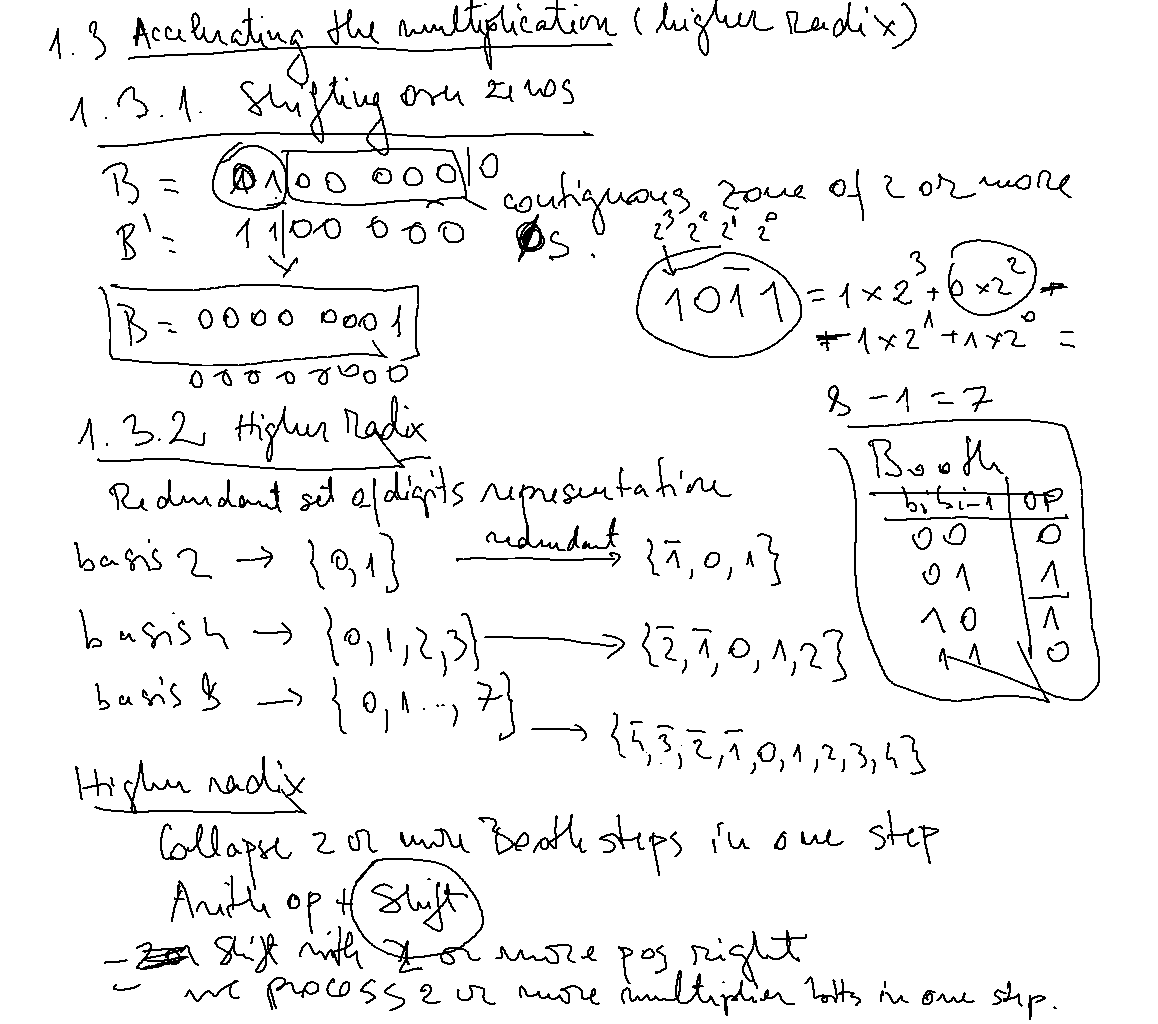 1.3 Accelerating the multiplication (higher radix)
1.3.1. Shifting over zeros
B = 01 00 000|0
contiguous zone of 2 or more
B' = 11|00 000
0s.
2³ 2² 2¹ 2⁰
101̅1 = 1×2³ + 0×2² +
+ -1×2¹ + 1×2⁰ =
B = 0000 0001
00000000
8 - 1 = 7
1.3.2. Higher Radix
Redundant set of digits representation
basis 2 → {0,1} redundant → {1̅, 0, 1}
basis 4 → {0,1,2,3} → {2̅, 1̅, 0, 1, 2}
basis 8 → {0, 1..., 7}
→ {4̅, 3̅, 2̅, 1̅, 0, 1, 2, 3, 4}
Booth
bᵢbᵢ₋₁ | op
00 | 0
01 | 1
10 | 1̅
11 | 0
Higher radix
Collapse 2 or more Booth steps in one step
Arith op + Shift
- Shift with 2 or more pos right
- we process 2 or more multiplier bits in one step.